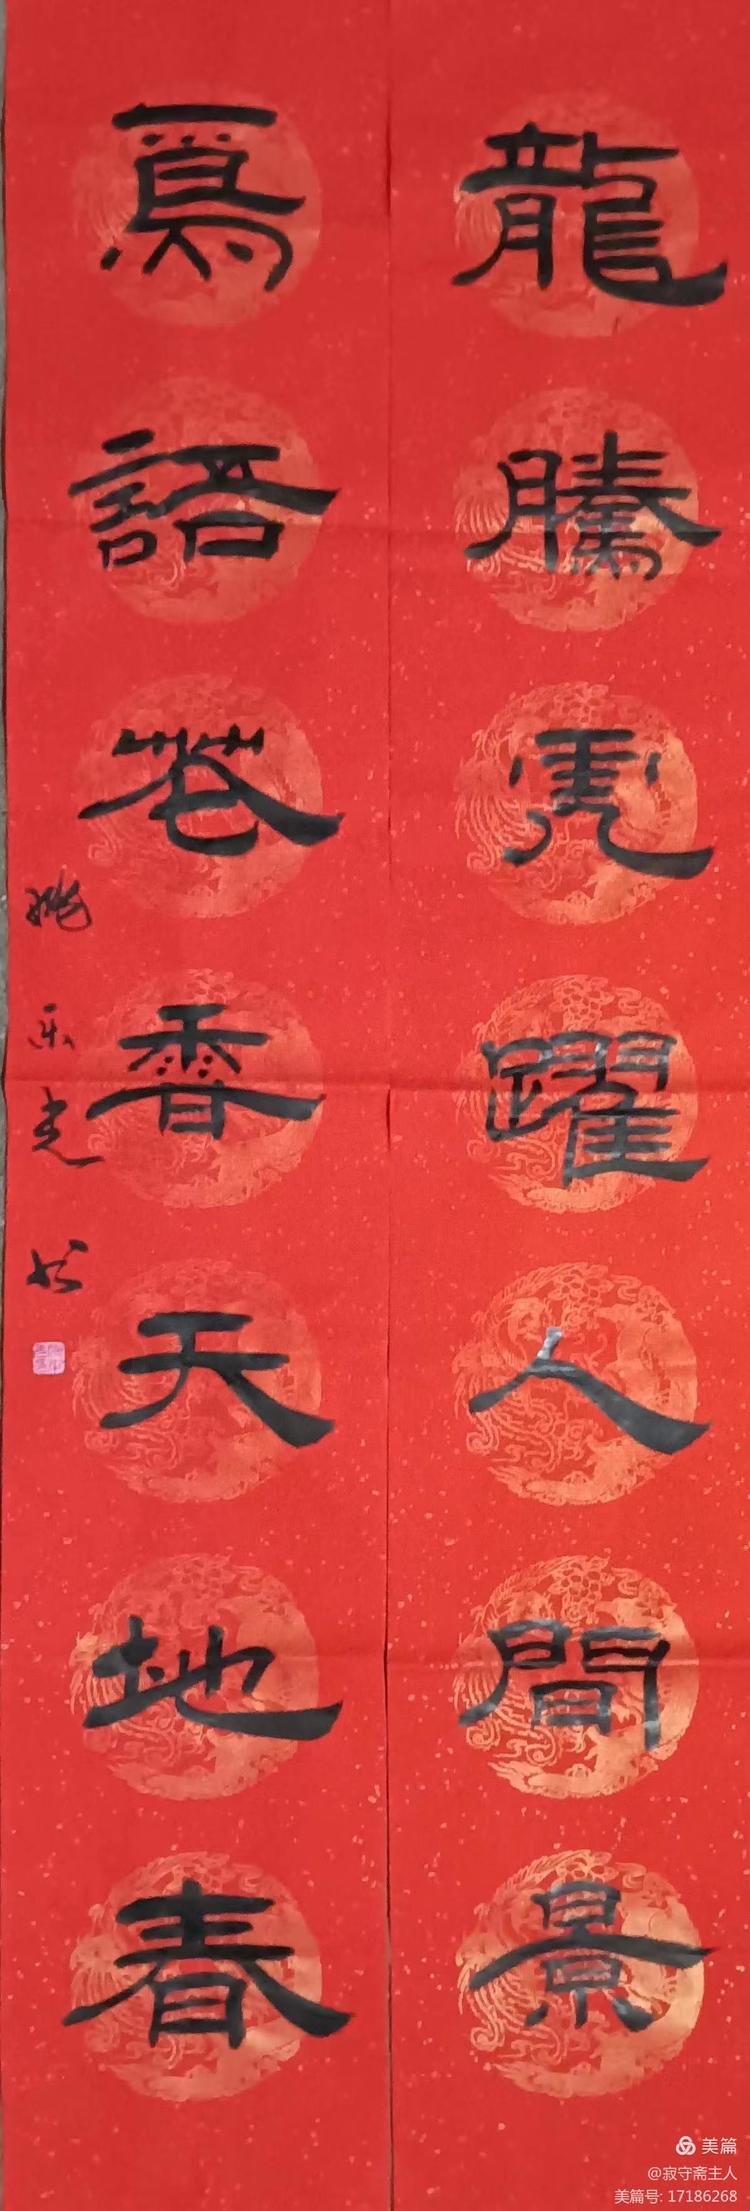 龍騰虎躍人間景
鳥語花香天地春
乐光
美篇
@寂守斋主人
美篇号: 17186268